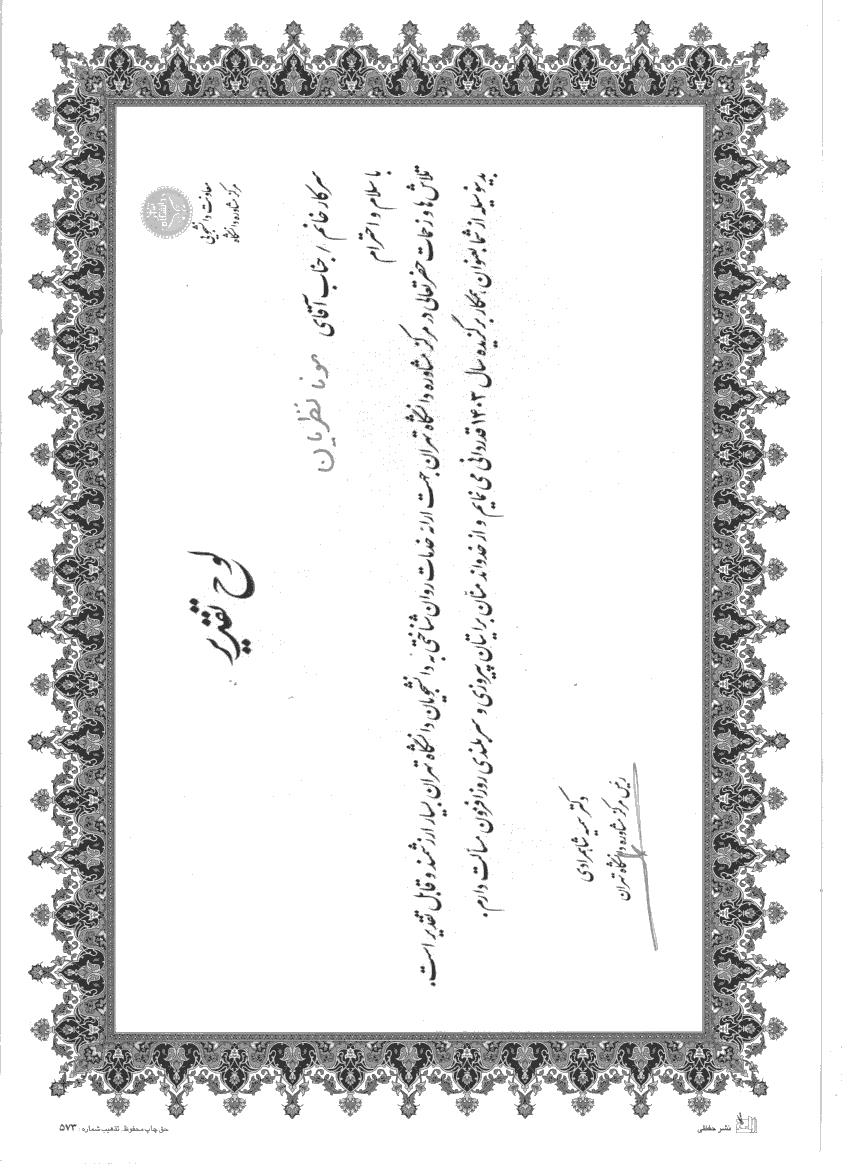 دانشگاه تهران
معاونت دانشجویی
مرکز مشاوره دانشگاه
لوح تقدیر
سرکار خانم / جناب آقای مونا نظریان
با سلام و احترام
تلاش ها و زحمات حضرتعالی در مرکز مشاوره دانشگاه تهران جهت ارائه خدمات روان شناختی به دانشجویان دانشگاه تهران بسیار ارزشمند و قابل تقدیر است.
بدینوسیله از شما بعنوان همکار برگزیده سال ۱۴۰۳ قدردانی می نمایم و از خداوند منان برایتان پیروزی و سربلندی روزافزون مسالت دارم.
دکتر سمیه شاهمرادی
رئیس مرکز مشاوره دانشگاه تهران
نشر حفظی
حق چاپ محفوظ. تذهیب شماره: ۵۷۳